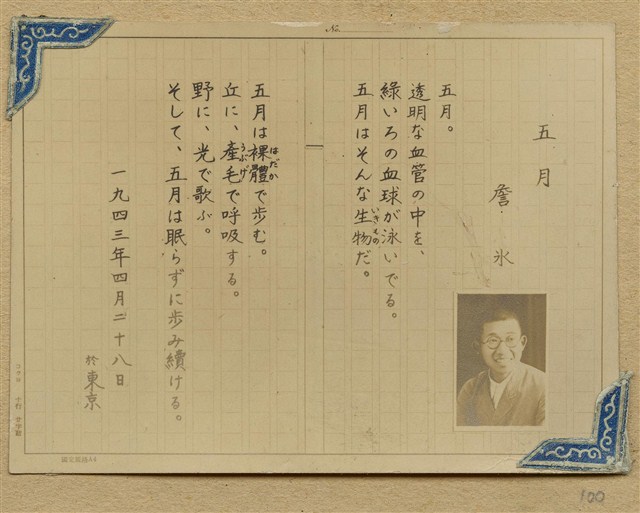 No.
五月
詹 氷
五月。
透明な血管の中を、
綠いろの血球が泳いでる。
五月はそんな生物だ。
いきもの
五月は裸體で步む。
はだか
丘に、產毛で呼吸する。
うぶげ
野に、光で歌ぶ。
そして、五月は眠らずに步み續ける。
一九四三年四月二十八日
於東京
100